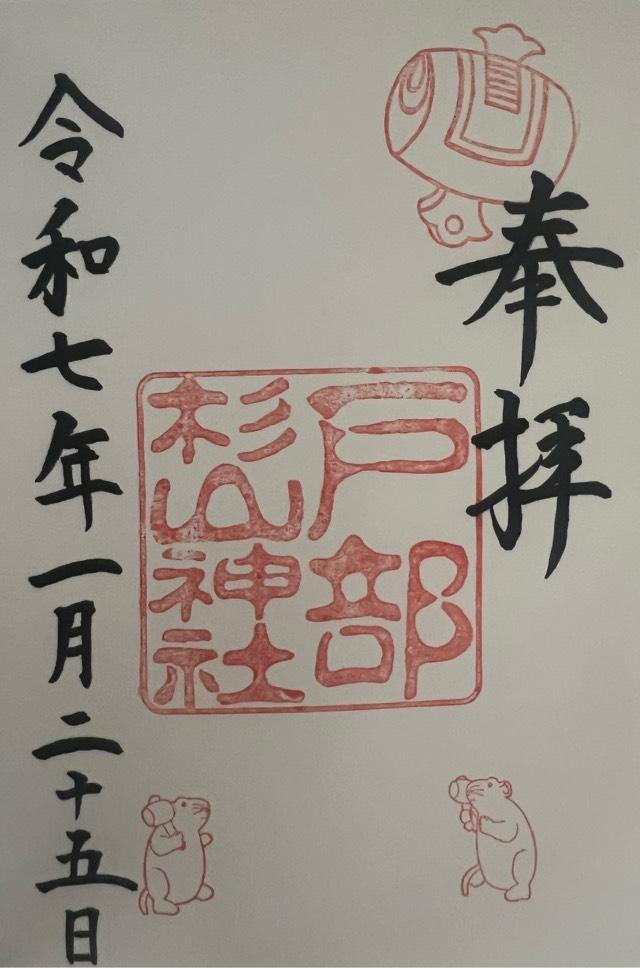 奉拝
戸部
杉山神社
令和七年一月二十五日